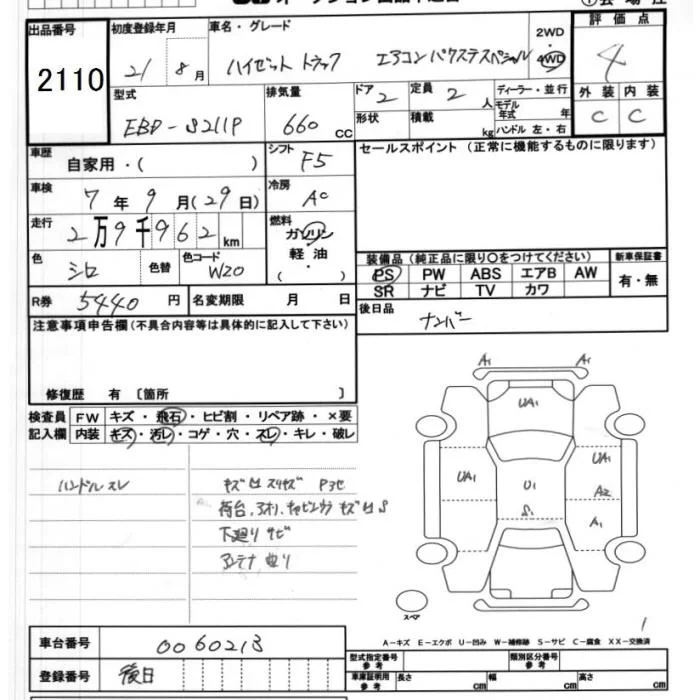 出品番号 初度登録年月 車名・グレード 2WD 評価点
2110 21 8月 ハイゼット トラック エアコンパワステスペシャル 4WD 4
型式 排気量 ドア 2 定員 2 人 ディーラー・並行 外装 内装
EBD-S211P 660 cc 形状 積載 kg モデル年式 年 C C
ハンドル 左・右
車歴 自家用・( ) シフト F5 セールスポイント (正常に機能するものに限ります)
車検 7年 9月(29日) 冷房 AC
走行 2万9千962km 燃料 ガソリン
軽油
( ・ )
色 シロ 色替 色コード W20 装備品 (純正品に限り○をつけてください) 新車保証書
PS PW ABS エアB AW 有・無
SR ナビ TV カワ
R券 5440円 名変期限 月 日 後日品 ナンバー
注意事項申告欄 (不具合内容等は具体的に記入して下さい)
修復歴 有 〔箇所 〕
検査員 FW キズ・飛石・ヒビ割・リペア跡・×要
記入欄 内装 キズ・汚レ・コゲ・穴・スレ・キレ・破レ
A1 A1
UA1
UA1 U1 UA1
A2
S1 A1
ハンドルスレ キズ凹 スリキズ P3セ
荷台、アオリ、キャビンウラ キズ凹S
下廻りサビ
アンテナ曲り
スペア
1
A-キズ E-エクボ U-凹み W-補修跡 S-サビ C-腐食 XX-交換済
車台番号 0060213 型式指定番号 参考 類別区分番号 参考
登録番号 後日 車庫証明用 参考 長さ cm 幅 cm 高さ cm